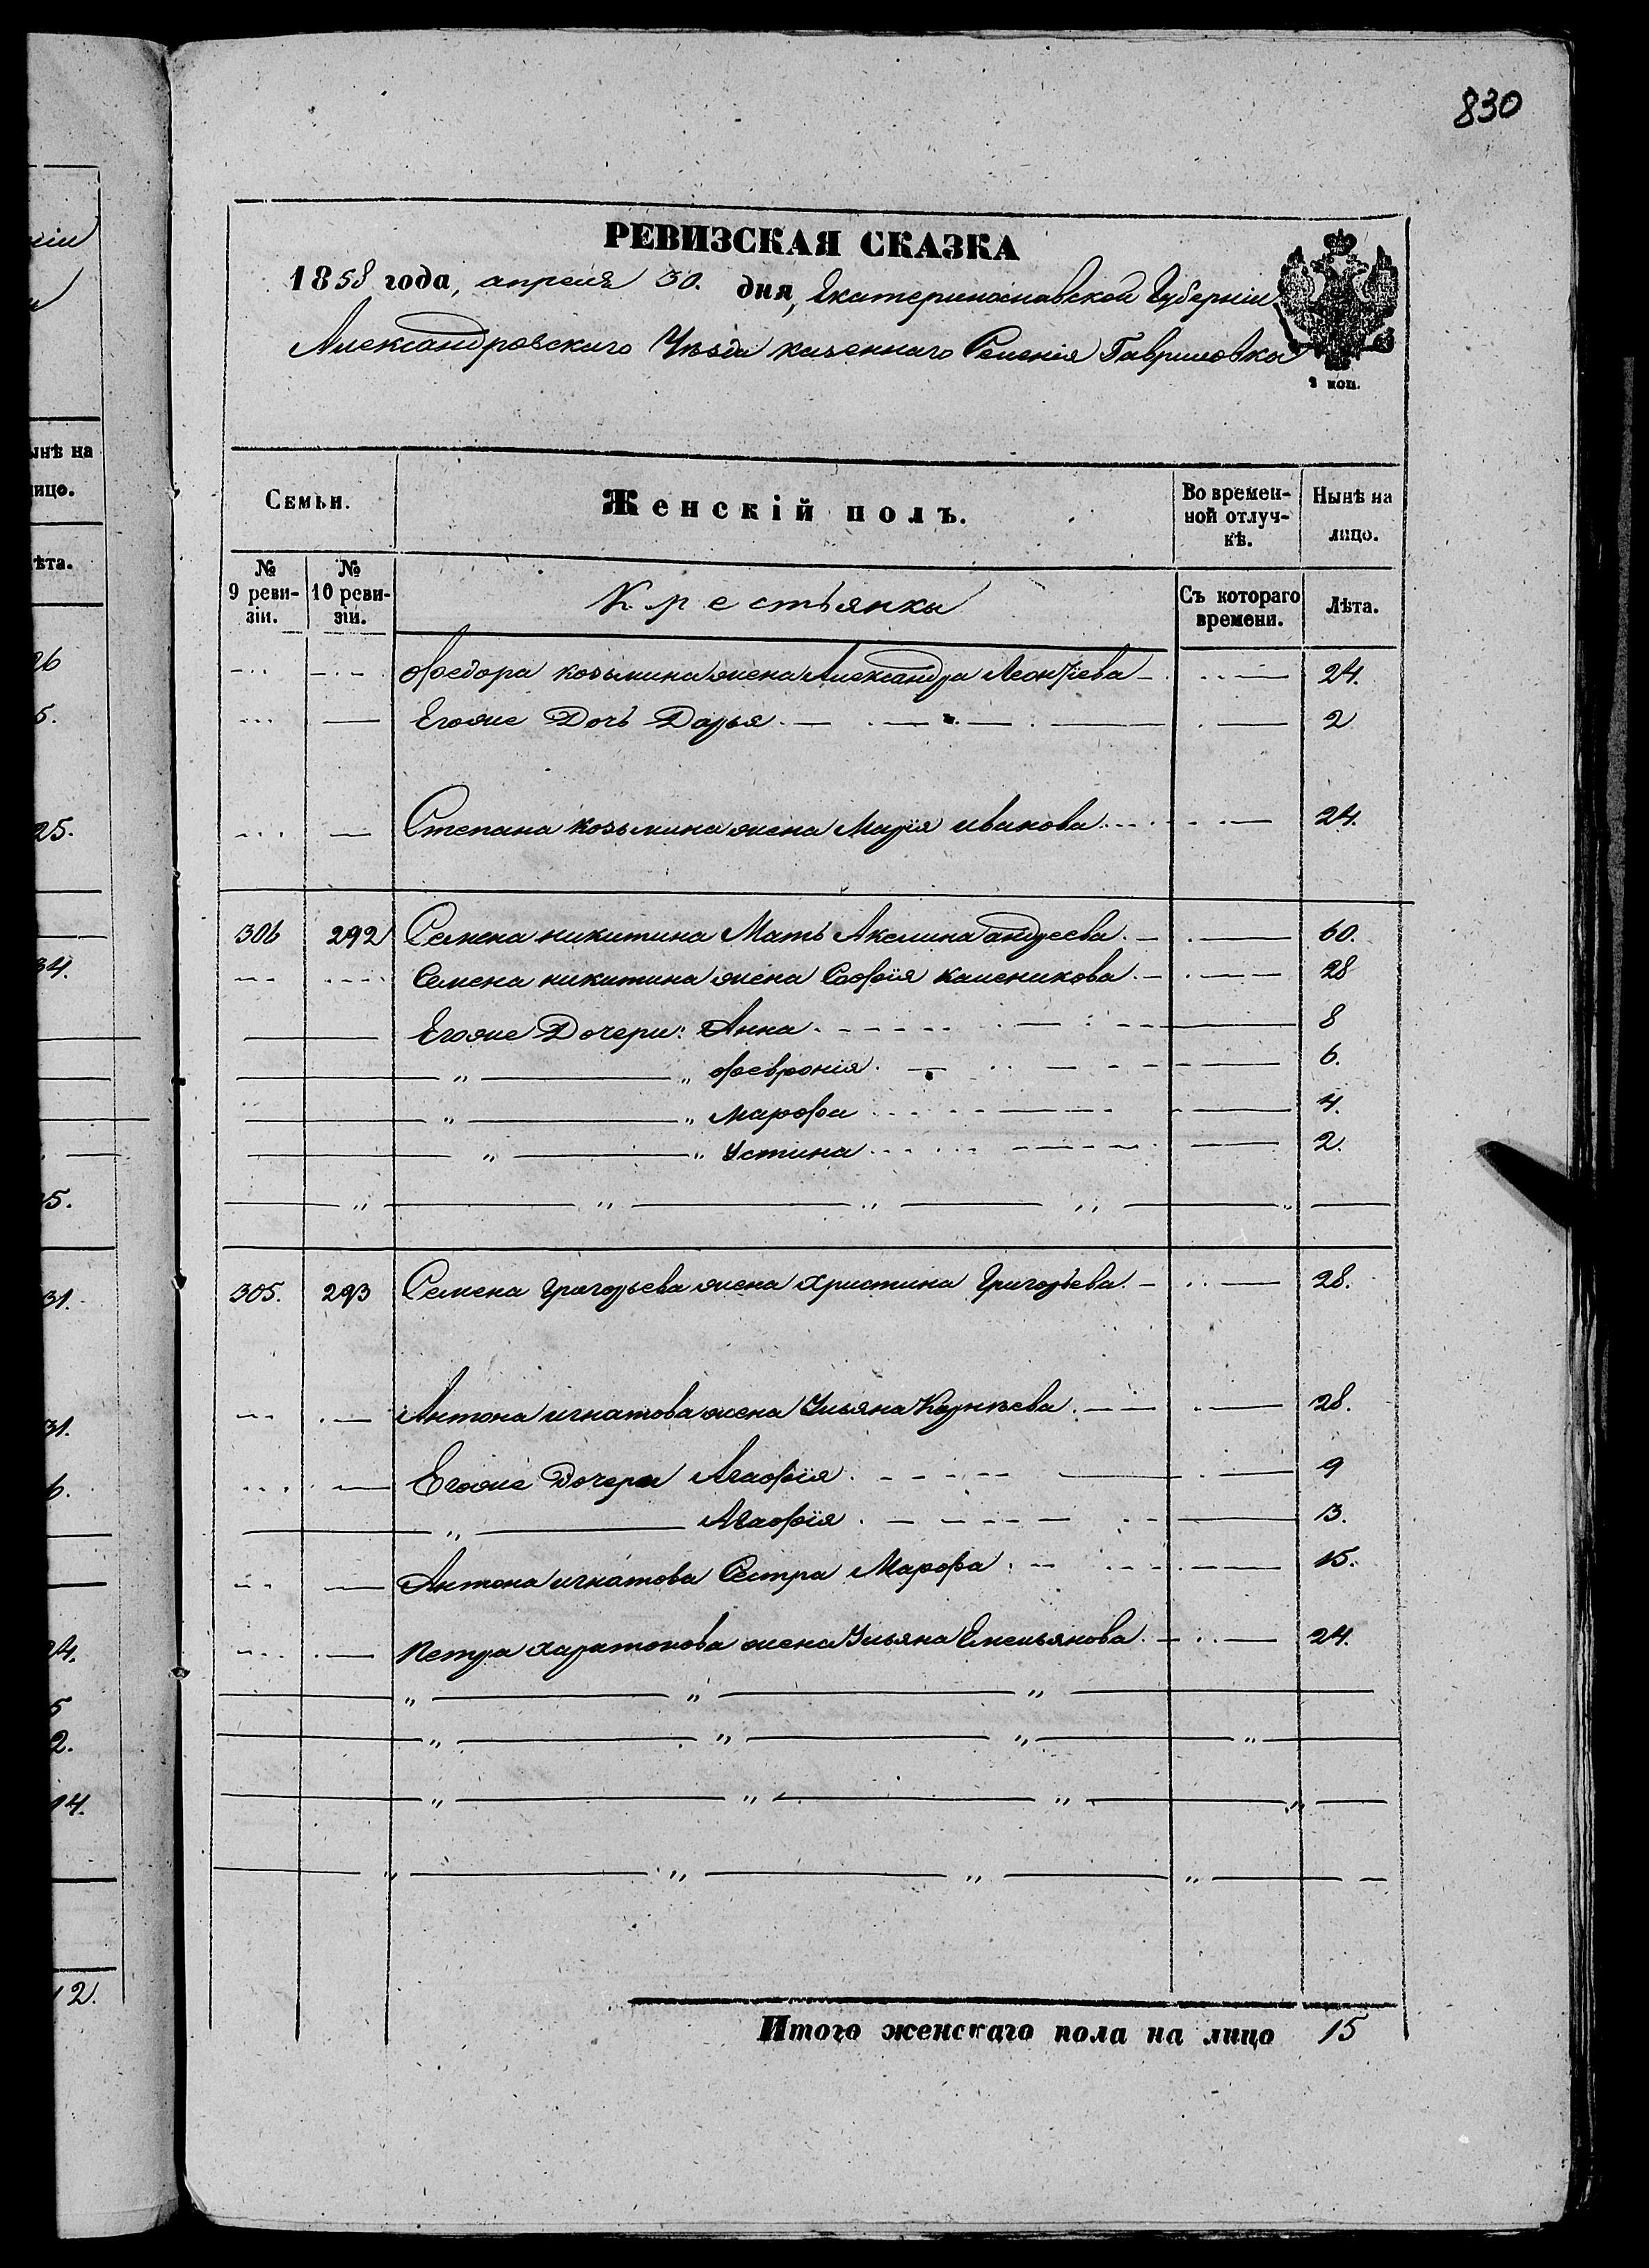 830
РЕВИЗСКАЯ СКАЗКА
1858 года, апреля 30. дня, Екатеринославской Губерніи
Александровскаго Уѣзда казеннаго Селенія Гавриловка
2 коп.
Семьи. Женскій полъ. Во времен- Нынѣ на
ной отлуч- лицо.
кѣ.
№ № Крестьянки Съ котораго Лѣта.
9 реви- 10 реви- времени.
зіи. зіи.
Федора козьмина жена Александра Леонтіева 24.
Егоже Дочь Дарья 2
Степана козьмина жена Марія иванова 24.
306 292 Семена никитина Мать Акслина андреева 60.
Семена никитина жена Софія калсникова 28
Егоже Дочери: Анна 8
" " Февронія 6.
" " Марфа 4.
" " Устина 2.
305. 293 Семена Григорьева жена Христина Григорьева 28.
Антона игнатова жена Ульяна Корнѣева 28.
Егоже Дочери Агафія 9
" Агафія 3.
Антона игнатова Сестра Марфа 15.
Петра харитонова жена Ульяна Емельянова 24.
Итого женскаго пола на лицо 15
ынѣ на
ицо.
ѣта.
26
5.
25.
34.
5.
31.
31.
6.
24.
5
2.
14.
12.